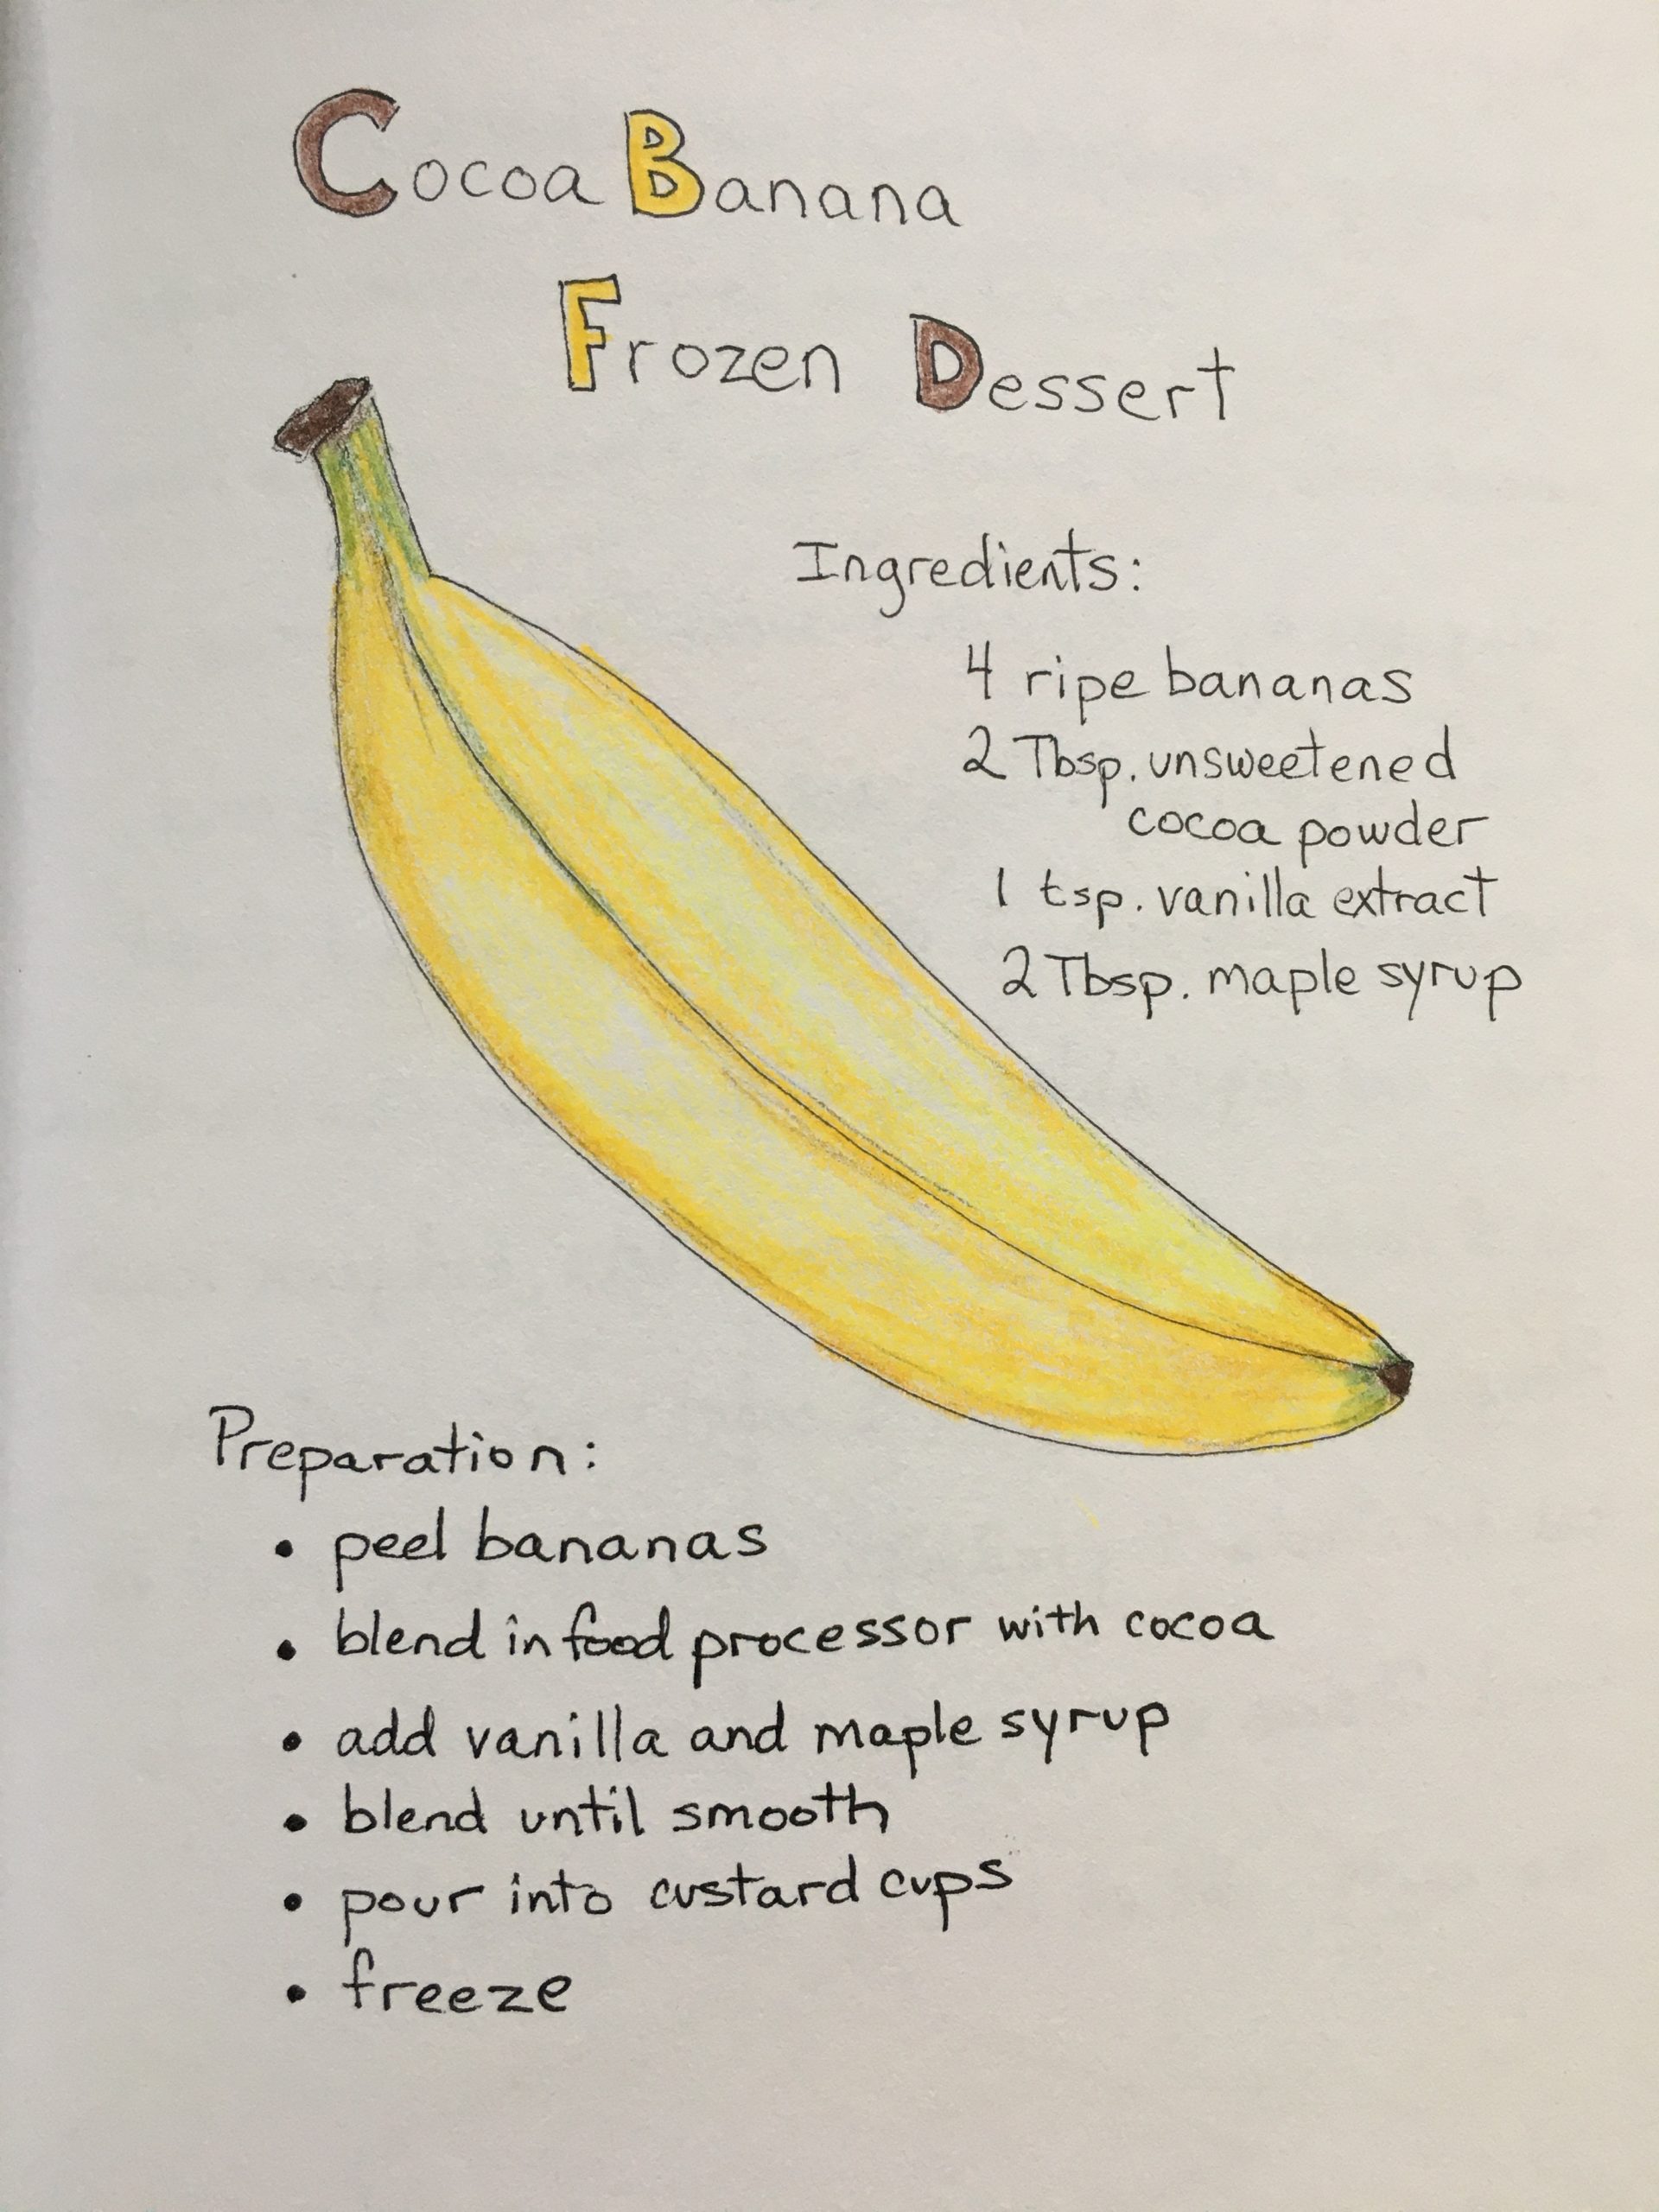 Cocoa Banana
Frozen Dessert
Ingredients:
4 ripe bananas
2 Tbsp. unsweetened
cocoa powder
1 tsp. vanilla extract
2 Tbsp. maple syrup
Preparation:
• peel bananas
• blend in food processor with cocoa
• add vanilla and maple syrup
• blend until smooth
• pour into custard cups
• freeze